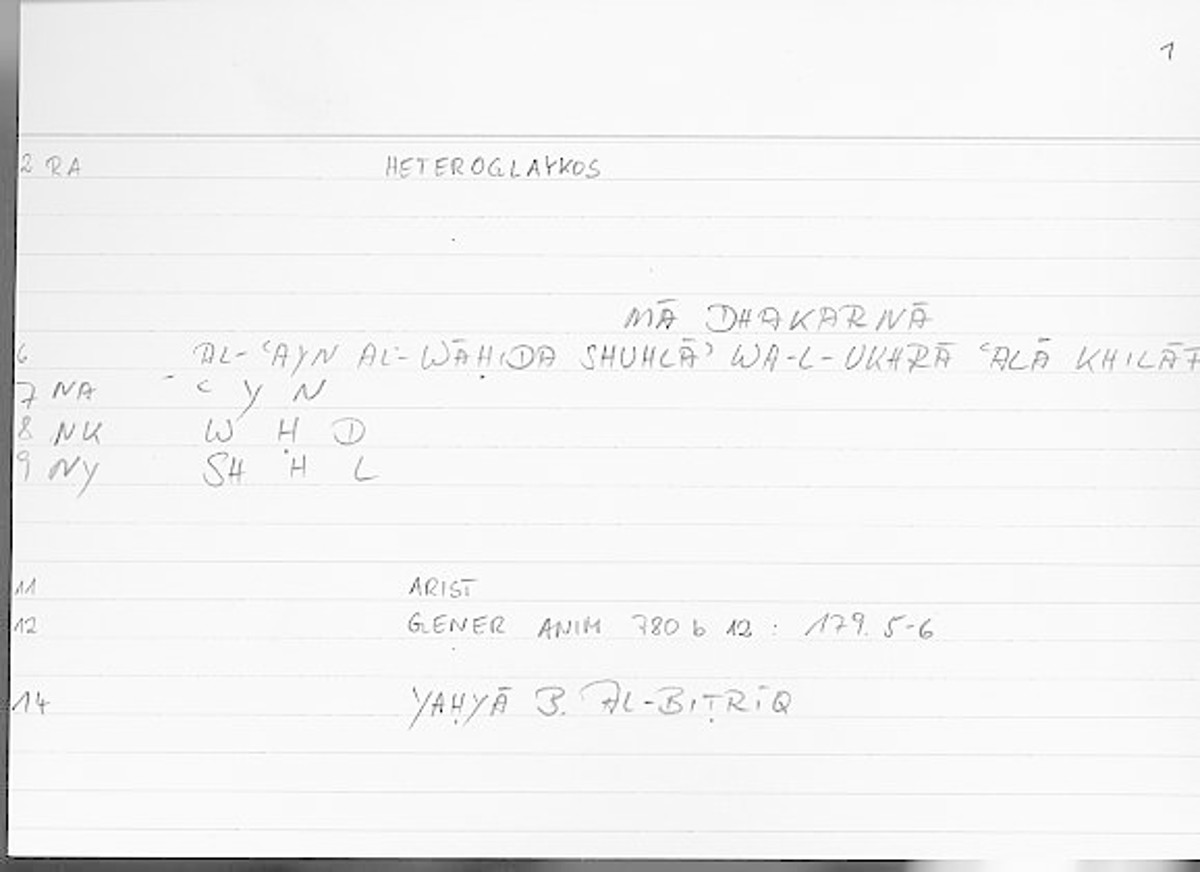 1
2 RA HETEROGLAYKOS
MĀ DHAKARNĀ
6 AL-ʿAYN AL-WĀḤIDA SHUHLĀʾ WA-L-UKHRĀ ʿALĀ KHILĀF
7 NA - ʿ Y N
8 NK W Ḥ D
9 NY SH H L
11 ARIST
12 GENER ANIM 780 b 12 : 179. 5-6
14 YAḤYĀ B. AL-BIṬRĪQ